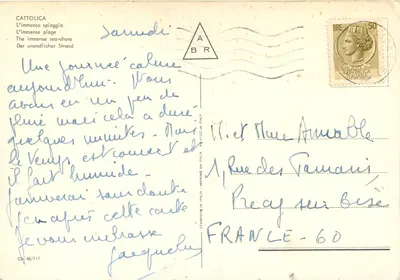 CATTOLICA
L'immensa spiaggia
L'immense plage
The immense sea-shore
Der unendlicher Strand
Samedi
Une journée calme
aujourd'hui. Nous
avons eu un peu de
pluie mais cela a duré
quelques minutes. Mais
le temps est couvert et
il fait humide.
J'arriverai sans doute
après cette carte
Je vous embrasse
Jacqueline
A
BR
50
M. et Mme Aimable
1, Rue des Tamaris
sur
FRANCE-60